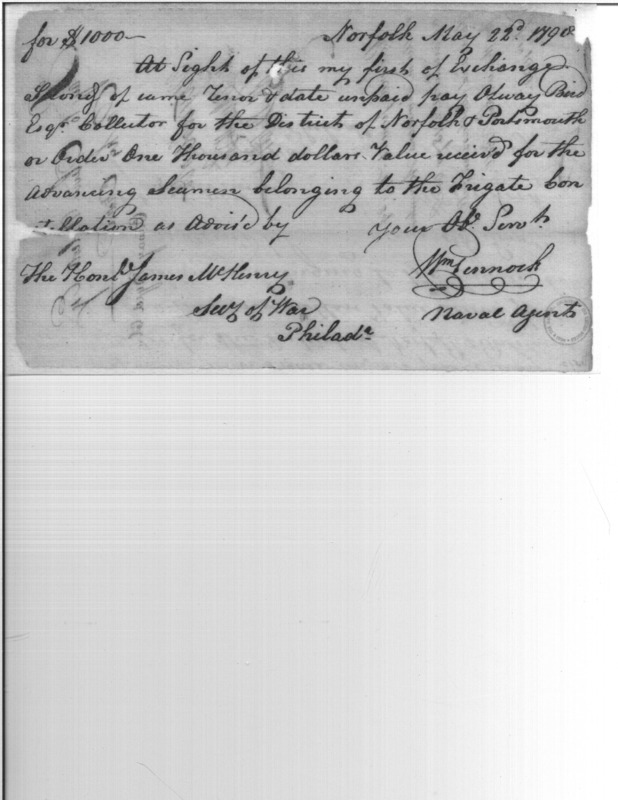 for $1000— Norfolk May 22d. 1798
At Sight of this my first of Exchange
Second of same Tenor & date unpaid pay Otway Bird
Esqr. Collector for the District of Norfolk & Portsmouth
or Order One Thousand dollars Value receiv'd for the
advancing Seamen belonging to the Frigate Con
stellation as Advis'd by your Ob. Servt.
The Honble James McHenry Wm Pennock
Secy. of War Naval Agent
Philada.